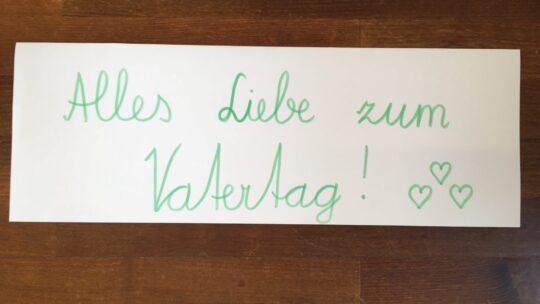 Alles Liebe zum
Vatertag! ♡♡♡